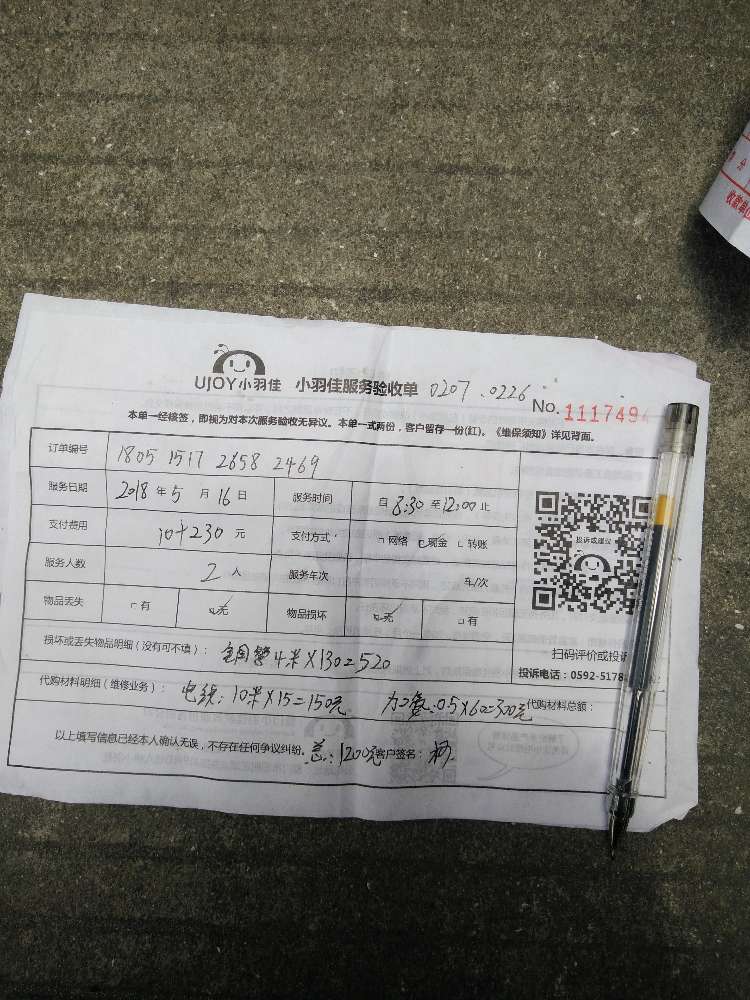 UJOY小羽佳 小羽佳服务验收单 0207 .0226
No. 1117494
本单一经核签，即视为对本次服务验收无异议。本单一式两份，客户留存一份(红)。《维保须知》详见背面。
订单编号 1805 1517 2658 2469
服务日期 2018 年 5 月 16 日 服务时间 自 8:30 至 12:00 止
支付费用 10+230 元 支付方式: 网络 现金 转账
投诉或建议
服务人数 2 人 服务车次 车/次
物品丢失 有 无 物品损坏 无 有
扫码评价或投诉
损坏或丢失物品明细（没有可不填）： 4米X130=520
投诉电话：0592-5178
代购材料明细（维修业务）： 电线：10米X15=150元 代购材料总额：
以上填写信息已经本人确认无误，不存在任何争议纠纷。 总：1200元 客户签名：
收款单位